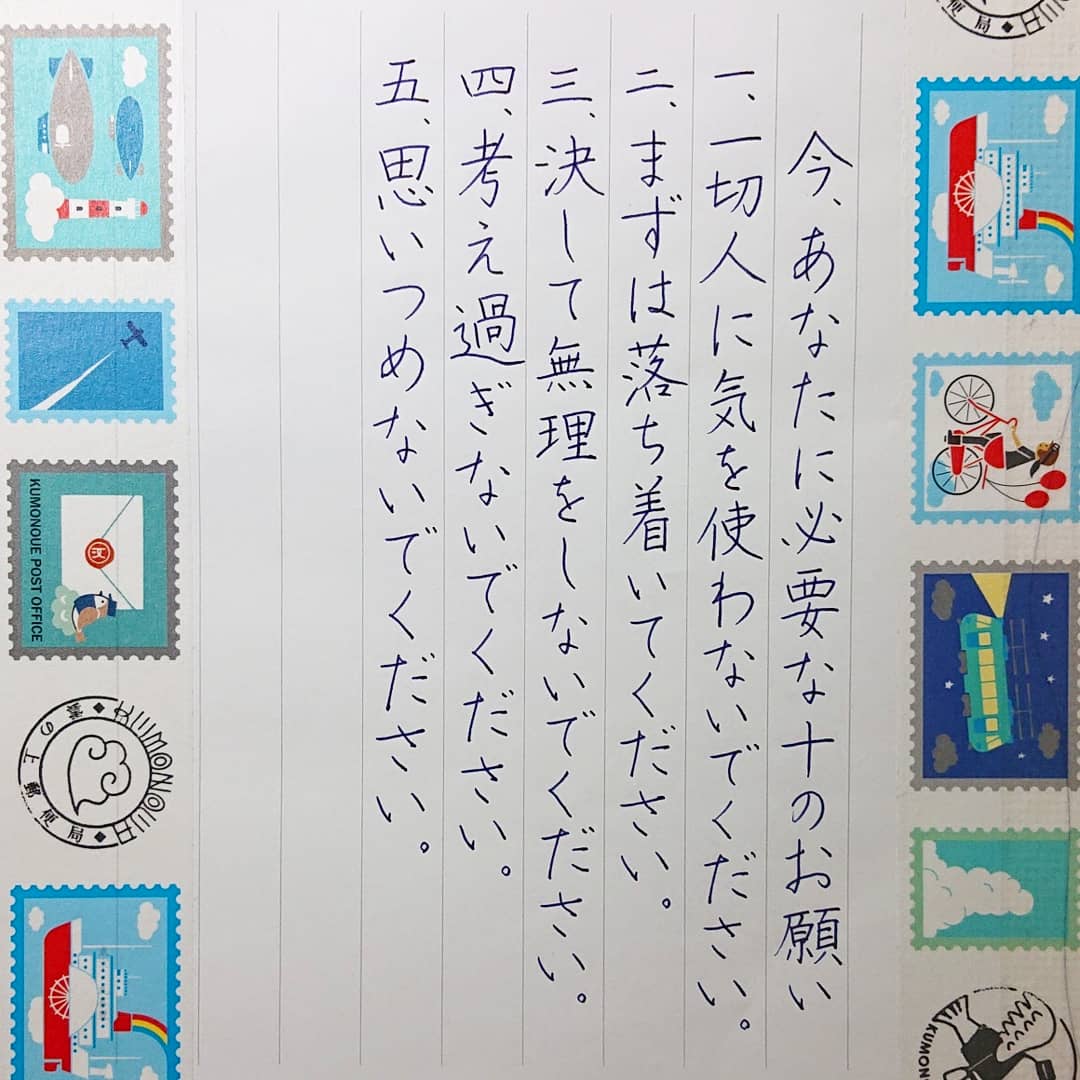 今、あなたに必要な十のお願い
一、一切人に気を使わないでください。
二、まずは落ち着いてください。
三、決して無理をしないでください。
四、考え過ぎないでください。
五、思いつめないでください。
KUMONOUE POST OFFICE
KUMONOUE
雲の上郵便局
便局
KUMON